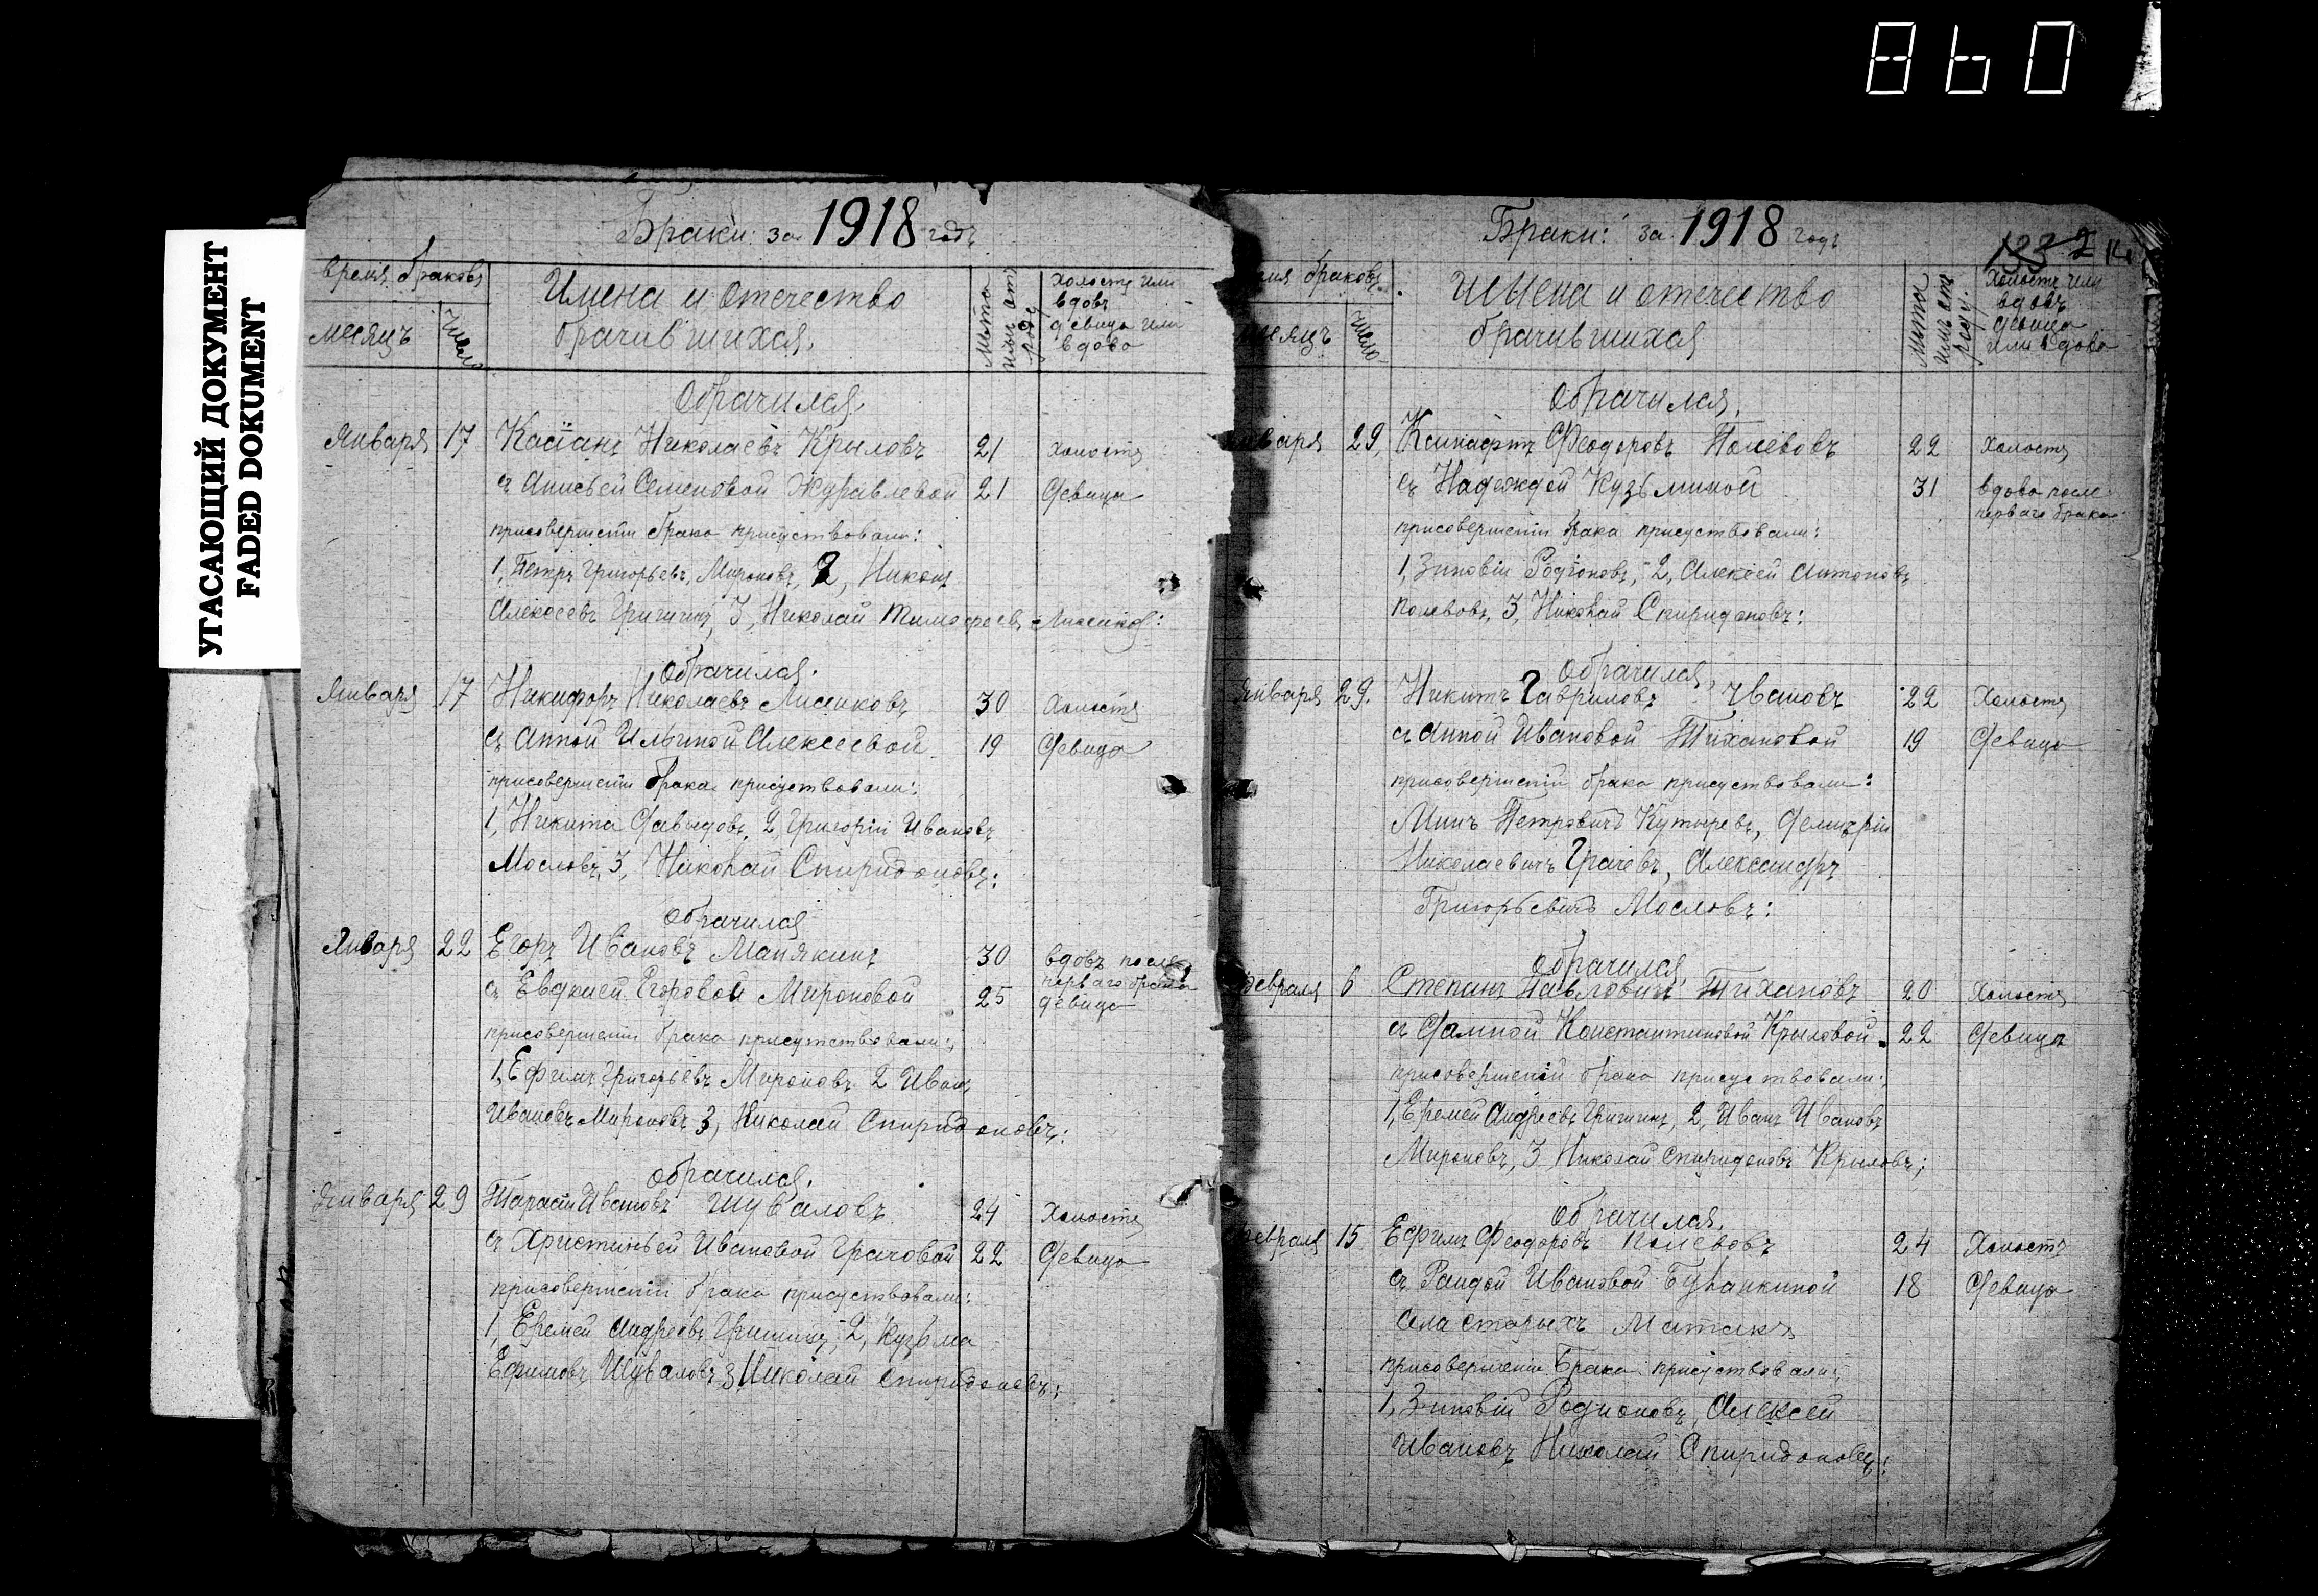 860
УГАСАЮЩИЙ ДОКУМЕНТ
FADED DOCUMENT
Браки: за 1918 годъ
время браковъ
месяцъ
число
Имена и отечество
брачившихся.
лѣта
роду
Холостъ или
вдовъ
девица или
вдова
Обрачился.
Января 17 Касіанъ Николаевъ Крыловъ 21 холостъ
съ Анисьей Семеновой Журавлевой 21 Девица
присовершеніи брака присуствовали:
1, Петръ Григорьевъ Мироновъ, 2, Никонъ
Алексеевъ Гришинъ, 3, Николай Тимофеевъ Лисенков:
Обрачился.
Января 17 Никифоръ Николаевъ Лисенковъ 30 Холостъ
съ Анной Ильиной Алексеевой 19 Девица
присовершеніи брака присуствовали:
1, Никита Давыдовъ, 2, Григорій Ивановъ
Масловъ, 3, Николай Спиридоновъ:
Обрачился
Января 22 Егоръ Ивановъ Манякинъ 30 вдовъ после
перваго брака
съ Евдкией Егоровой Мироновой 25 девица
присовершеніи брака присутствовали:
1, Ефимъ Григорьевъ Мироновъ 2 Иванъ
Ивановъ Мироновъ 3, Николай Спиридоновъ:
Обрачился.
Января 29 Тарасій Ивановъ Шуваловъ 24 Холостъ
съ Христиньей Ивановой Грачовой 22 Девица
присовершеніи брака присуствовали:
1, Еремей Андреевъ Гришинъ, 2, Кузьма
Ефимовъ Шуваловъ 3 Николай Спиридоновъ:
Браки: за 1918 годъ
133 2
браковъ
число
Имена и отечество
брачившихся
лѣта
роду.
Холостъ или
вдовъ
девица
или вдова
Обрачился.
29, Феодоровъ Полевовъ 22 Холостъ
съ Надеждой Кузьминой 31 вдова после
перваго брака
присовершеніи брака присуствовали:
1, Зиновій Родіоновъ, 2, Алексей Антоновъ
Полевовъ, 3, Николай Спиридоновъ:
Обрачился,
Января 29. Никитъ Гавриловъ Ивановъ 22 Холостъ
съ Анной Ивановой Тихановой 19 Девица
присовершеній брака присуствовали:
Минъ Петровичъ Кутыревъ, Демитрій
Николаевичъ Грачевъ, Александръ
Григорьевичъ Масловъ:
Обрачился
Февраля 6 Степанъ Павловичъ Тихановъ 20 Холостъ
съ Домной Константиновой Крыловой. 22 Девица
присовершеній брака присуствовали:
1, Еремей Андреевъ Гришинъ, 2, Иванъ Ивановъ
Мироновъ, 3 Николай Спиридоновъ Крыловъ;
Обрачился.
Февраля 15 Ефимъ Феодоровъ Полевовъ 24 Холостъ
съ Раидой Ивановой 18 Девица
села старыхъ Матакъ
присовершеніи Брака присуствовали:
1, Зиновій Родионовъ, Алексей
Ивановъ Николай Спиридоновъ: